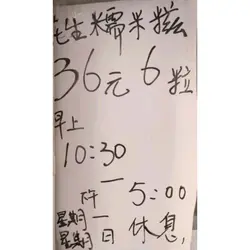 花生糯米糍
36元6粒
早上
10:30
—
下午 5:00
星期一
星期日 休息,